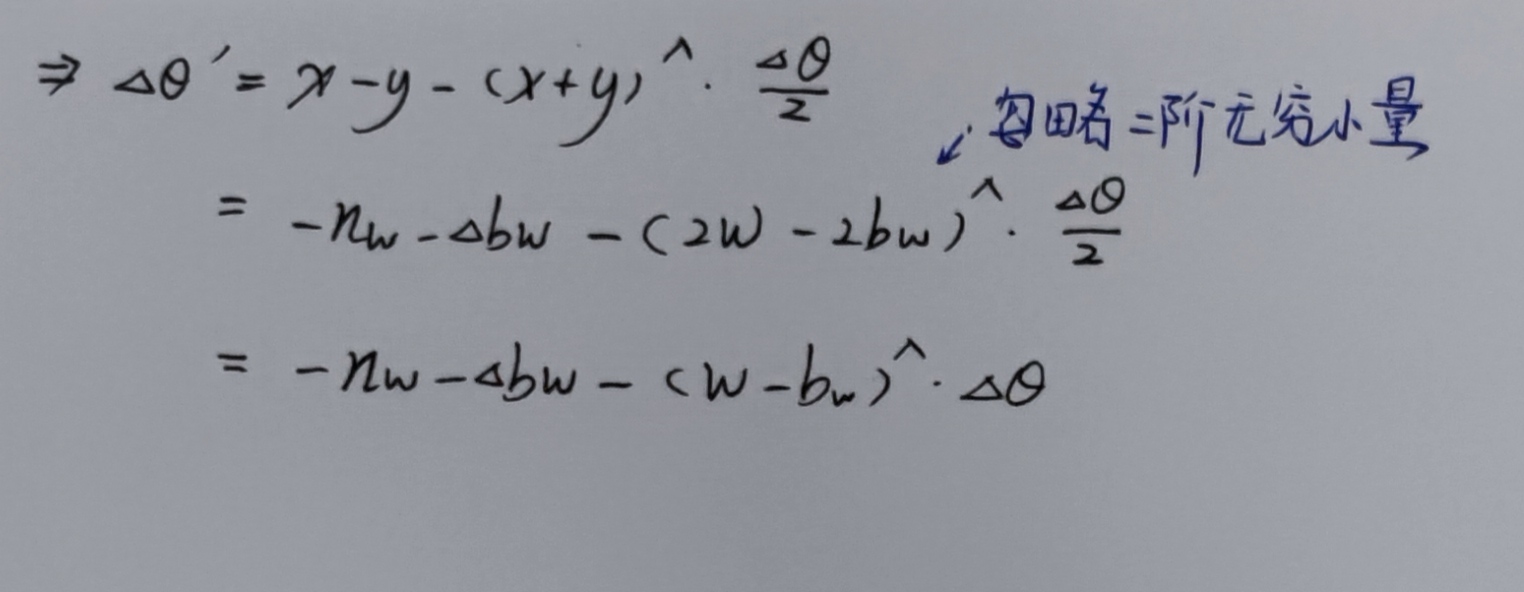 ⇒ Δθ′ = x - y - (x+y)^ · Δθ/2
忽略二阶无穷小量
= -nw - Δbw - (2w - 2bw)^ · Δθ/2
= -nw - Δbw - (w - bw)^ · Δθ